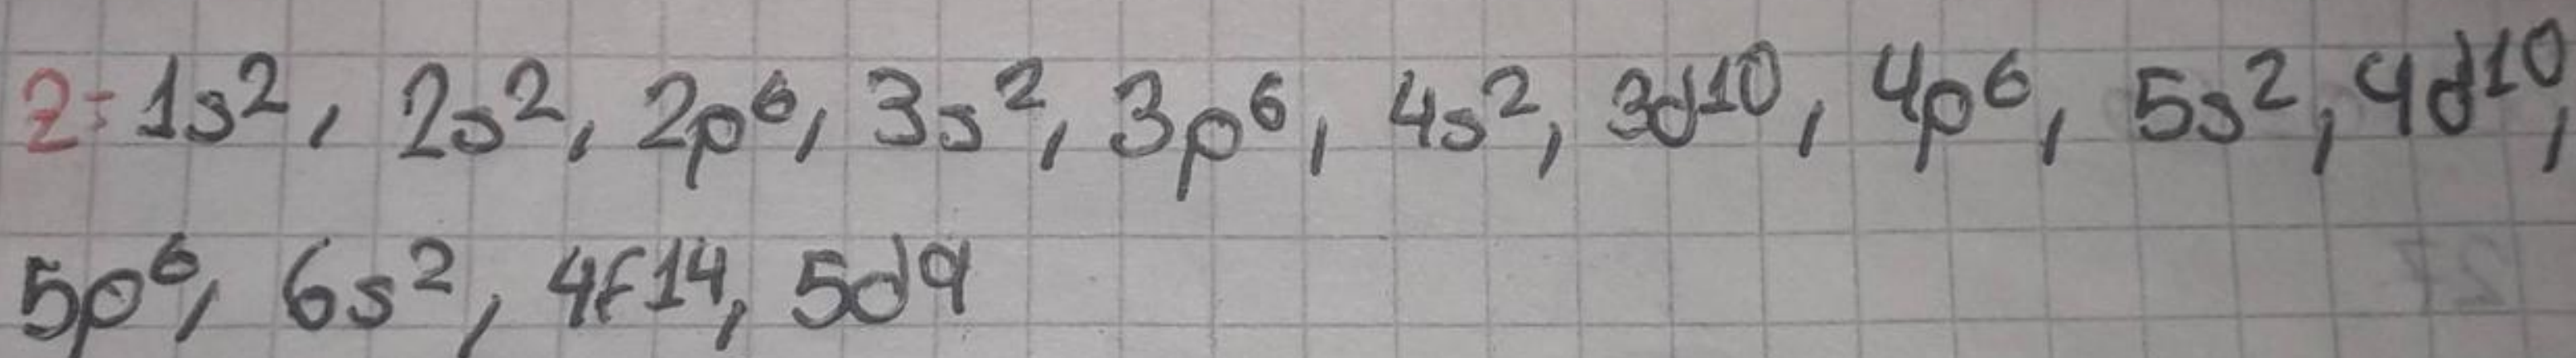 Z= 1s², 2s², 2p⁶, 3s², 3p⁶, 4s², 3d¹⁰, 4p⁶, 5s², 4d¹⁰,
5p⁶, 6s², 4f¹⁴, 5d⁹